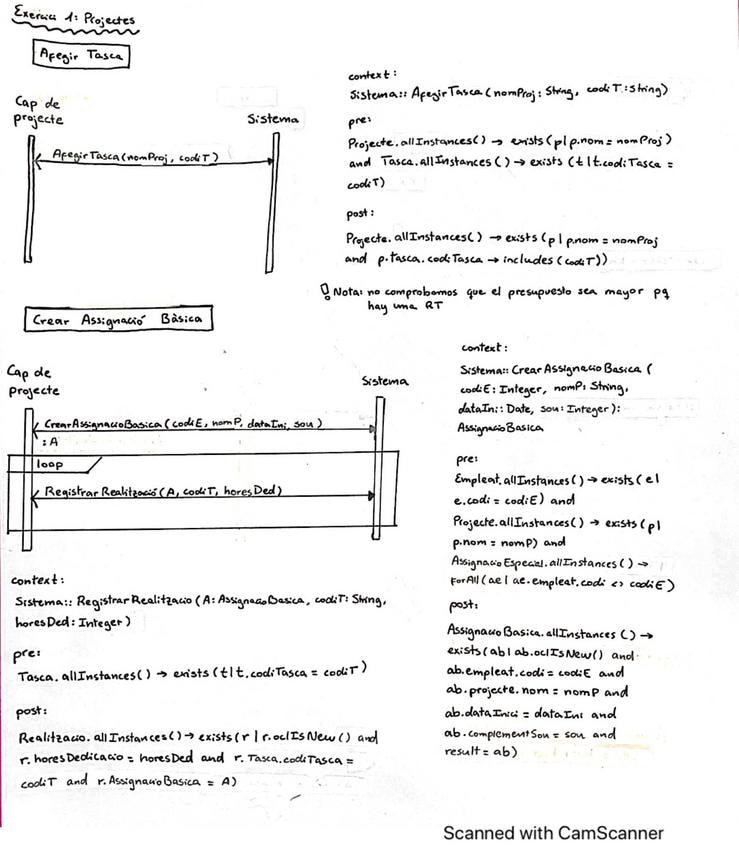 Exercici 1: Projectes
Afegir Tasca
Cap de
projecte
Sistema
AfegirTasca(nomProj, codiT)
context:
Sistema:: AfegirTasca (nomProj: String, codiT: String)
pre:
Projecte.allInstances() → exists(p|p.nom = nomProj)
and Tasca.allInstances() → exists (t|t.codiTasca =
codiT)
post:
Projecte.allInstances() → exists(p | p.nom = nomProj
and p.tasca.codiTasca → includes (codiT))
Nota: no comprobamos que el presupuesto sea mayor pq
hay una RT
Crear Assignació Bàsica
Cap de
projecte
Sistema
CrearAssignacioBasica (codiE, nomP, dataIni, sou)
: A
loop
RegistrarRealització(A, codiT, horesDed)
context:
Sistema:: RegistrarRealitzacio (A: AssignacioBasica, codiT: String,
horesDed: Integer)
pre:
Tasca.allInstances() → exists (t|t.codiTasca = codiT)
post:
Realitzacio.allInstances() → exists (r | r.oclIsNew() and
r.horesDedicacio = horesDed and r.Tasca.codiTasca =
codiT and r.AssignacioBasica = A)
context:
Sistema:: CrearAssignacioBasica (
codiE: Integer, nomP: String,
dataIni: Date, sou: Integer):
AssignacioBasica
pre:
Empleat.allInstances() → exists (e|
e.codi = codiE) and
Projecte.allInstances() → exists (p|
p.nom = nomP) and
AssignacioEspecial.allInstances() →
forAll (ae | ae.empleat.codi <> codiE)
post:
AssignacioBasica.allInstances() →
exists (ab| ab.oclIsNew() and
ab.empleat.codi = codiE and
ab.projecte.nom = nomP and
ab.dataInici = dataIni and
ab.complementSou = sou and
result = ab)
Scanned with CamScanner